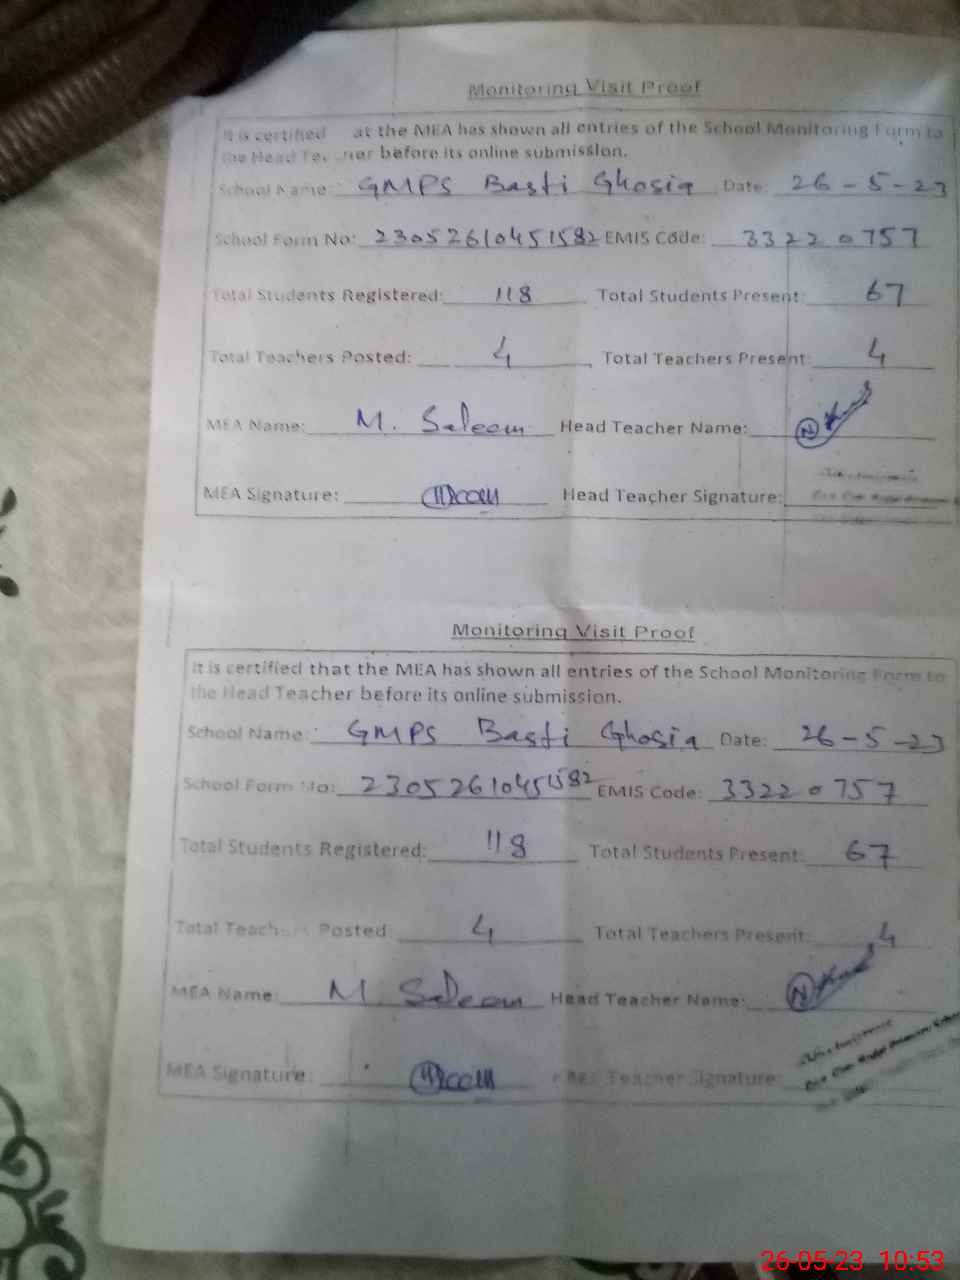 Monitoring Visit Proof
It is certified at the MEA has shown all entries of the School Monitoring Form to
the Head Teacher before its online submission.
School Name: GMPS Basti Ghosia Date: 26-5-23
School Form No: 23052610451582 EMIS Code: 33220757
Total Students Registered: 118 Total Students Present: 67
Total Teachers Posted: 4 Total Teachers Present: 4
MEA Name: M. Saleem Head Teacher Name:
MEA Signature: Head Teacher Signature:
Monitoring Visit Proof
It is certified that the MEA has shown all entries of the School Monitoring Form to
the Head Teacher before its online submission.
School Name: GMPS Basti Ghosia Date: 26-5-23
School Form No: 23052610451582 EMIS Code: 33220757
Total Students Registered: 118 Total Students Present: 67
Total Teachers Posted: 4 Total Teachers Present: 4
MEA Name: M. Saleem Head Teacher Name:
MEA Signature: Head Teacher Signature:
26-05-23 10:53